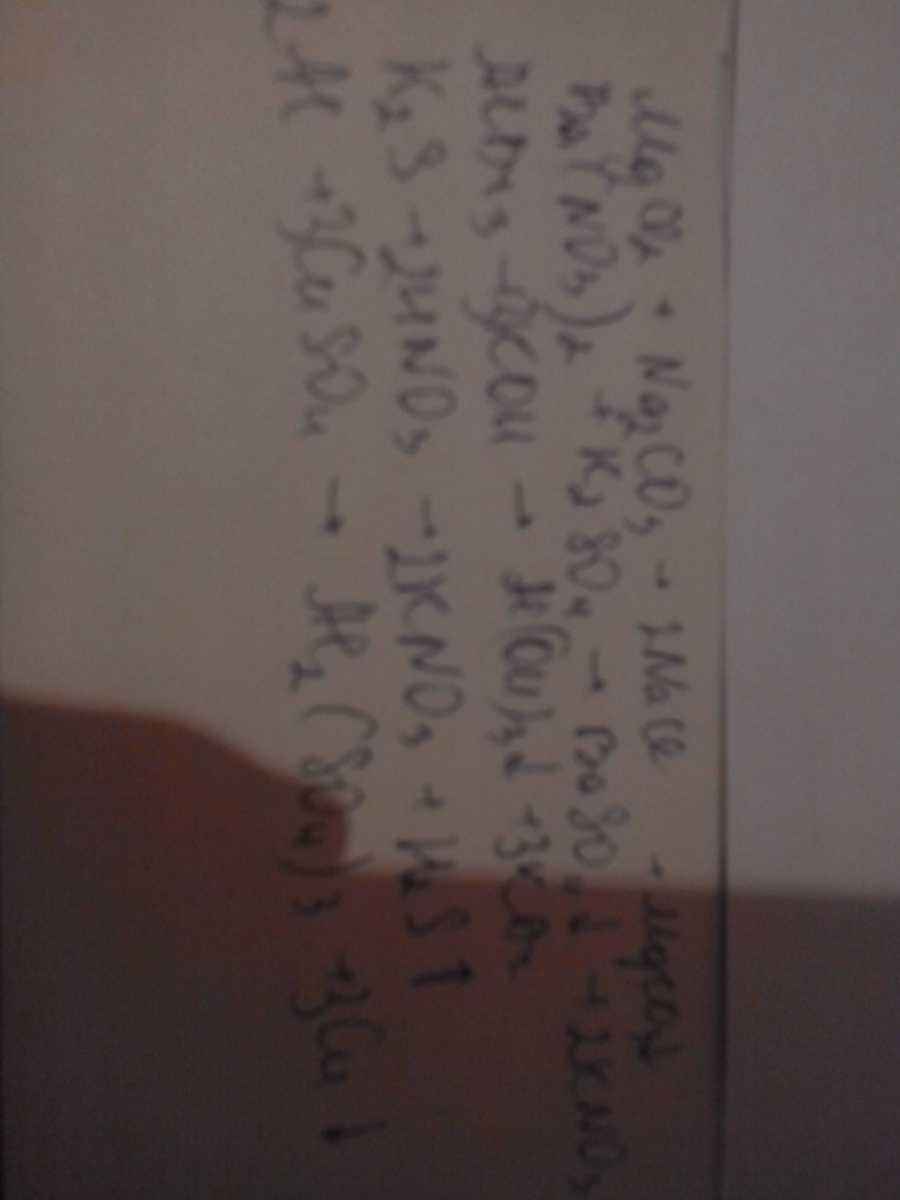 MgCl₂ + Na₂CO₃ → 2NaCl + MgCO₃↓
Ba(NO₃)₂ + K₂SO₄ → BaSO₄↓ + 2KNO₃
AlBr₃ + 3KOH → Al(OH)₃↓ + 3KBr
K₂S + 2HNO₃ → 2KNO₃ + H₂S↑
2Al + 3CuSO₄ → Al₂(SO₄)₃ + 3Cu↓